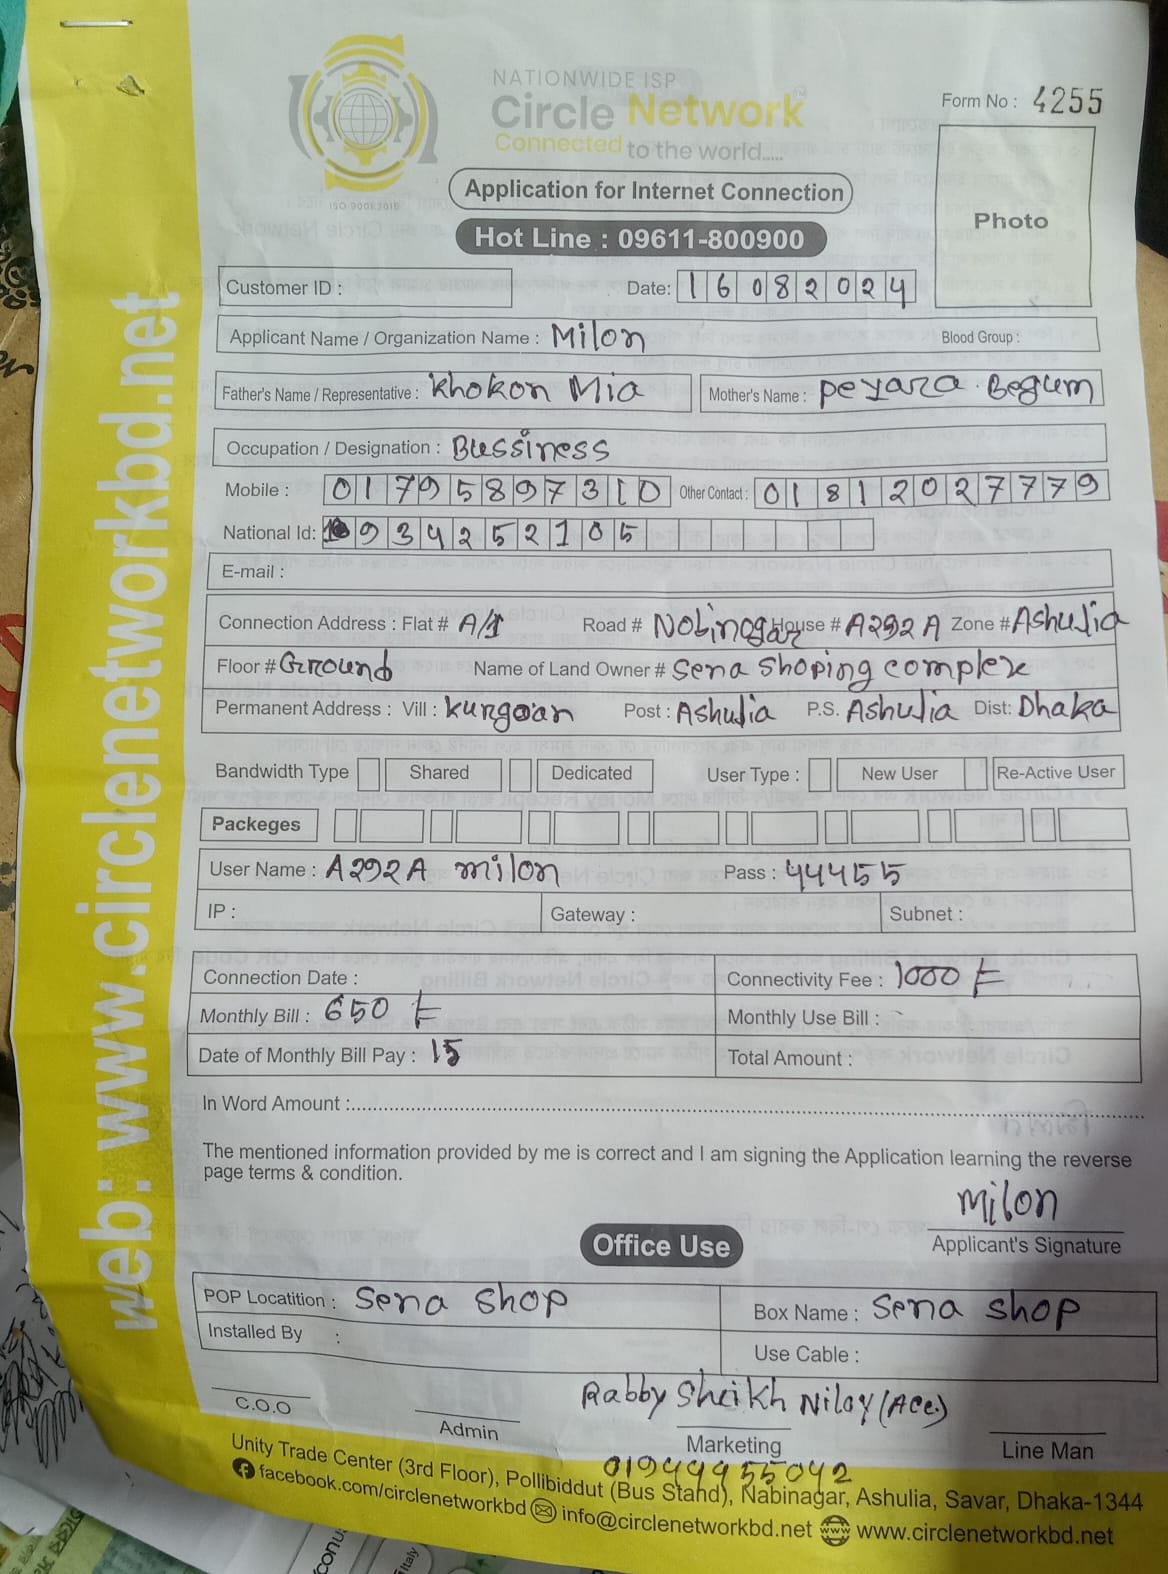 NATIONWIDE ISP
Circle Network
Connected to the world.....
ISO 9001:2015
Form No : 4255
Photo
Application for Internet Connection
Hot Line : 09611-800900
Customer ID :
Date: 16082024
Applicant Name / Organization Name : Milon
Blood Group :
Father's Name / Representative : Khokon Mia
Mother's Name : peyara Begum
Occupation / Designation : Bussiness
Mobile : 01795897310
Other Contact : 01812027779
National Id: 934252105
E-mail :
Connection Address : Flat # A/1 Road # Nobinogar House # A292A Zone # Ashulia
Floor # Ground Name of Land Owner # Sena shoping complex
Permanent Address : Vill : kurgoan Post : Ashulia P.S. Ashulia Dist: Dhaka
Bandwidth Type Shared Dedicated User Type : New User Re-Active User
Packeges
User Name : A292A milon Pass : 44455
IP : Gateway : Subnet :
Connection Date : Connectivity Fee : 1000 ৳
Monthly Bill : 650 ৳ Monthly Use Bill :
Date of Monthly Bill Pay : 15 Total Amount :
In Word Amount :
The mentioned information provided by me is correct and I am signing the Application learning the reverse
page terms & condition.
Milon
Applicant's Signature
Office Use
POP Locatition : Sena shop Box Name : Sena shop
Installed By : Use Cable :
Rabby Sheikh Niloy (Ace)
C.O.O Admin Marketing Line Man
01949955042
Unity Trade Center (3rd Floor), Pollibiddut (Bus Stand), Nabinagar, Ashulia, Savar, Dhaka-1344
facebook.com/circlenetworkbd info@circlenetworkbd.net www.circlenetworkbd.net
web: www.circlenetworkbd.net
Italy